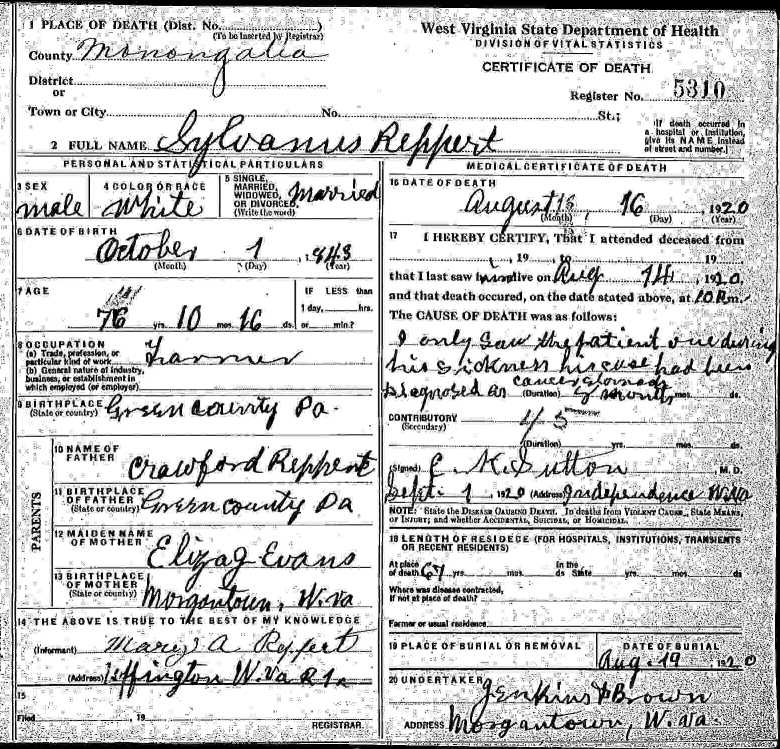 1 PLACE OF DEATH (Dist. No. )
(To be inserted by Registrar)
County Monongalia
District
or
Town or City No. St.;
West Virginia State Department of Health
DIVISION OF VITAL STATISTICS
CERTIFICATE OF DEATH
Register No. 5310
(If death occurred in
a hospital or institution,
give its NAME instead
of street and number.)
2 FULL NAME Sylvanus Reppert
PERSONAL AND STATISTICAL PARTICULARS
3 SEX
male
4 COLOR OR RACE
White
5 SINGLE,
MARRIED,
WIDOWED,
OR DIVORCED
(Write the word)
Married
6 DATE OF BIRTH
October 1, 1843
(Month) (Day) (Year)
7 AGE
76 yrs. 10 mos. 16 ds.
IF LESS than
1 day, hrs.
or min.?
8 OCCUPATION
(a) Trade, profession, or
particular kind of work Farmer
(b) General nature of industry,
business, or establishment in
which employed (or employer)
9 BIRTHPLACE
(State or country) Green county Pa.
PARENTS
10 NAME OF
FATHER
Crawford Reppert
11 BIRTHPLACE
OF FATHER
(State or country) Green county Pa
12 MAIDEN NAME
OF MOTHER
Eliza J Evans
13 BIRTHPLACE
OF MOTHER
(State or country)
Morgantown, W. va
14 THE ABOVE IS TRUE TO THE BEST OF MY KNOWLEDGE
(Informant) Mary A Reppert
(Address) Uffington W. Va R 1
15
Filed 19
REGISTRAR.
MEDICAL CERTIFICATE OF DEATH
16 DATE OF DEATH
August 16, 1920
(Month) (Day) (Year)
17 I HEREBY CERTIFY, That I attended deceased from
, 19 to , 19
that I last saw him alive on Aug 14, 1920,
and that death occured, on the date stated above, at 10 P.m.
The CAUSE OF DEATH was as follows:
I only saw the patient one during
his sickness his case had been
diagnosed as cancer stomach
(Duration) months mos. ds.
CONTRIBUTORY
(Secondary)
45
(Duration) yrs. mos. ds.
(Signed) E. M. Sutton, M. D.
Sept. 1, 1920 (Address) Independence W. Va
NOTE: State the DISEASE CAUSING DEATH. In deaths from VIOLENT CAUSE, State MEANS,
OF INJURY; and whether ACCIDENTAL, SUICIDAL, or HOMICIDAL.
18 LENGTH OF RESIDECE (FOR HOSPITALS, INSTITUTIONS, TRANSIENTS
OR RECENT RESIDENTS)
At place
of death 67 yrs. mos. ds
In the
State yrs. mos. ds
Where was disease contracted,
if not at place of death?
Former or usual residence
19 PLACE OF BURIAL OR REMOVAL
DATE OF BURIAL
Aug. 19 1920
20 UNDERTAKER Jenkins & Brown
ADDRESS Morgantown, W. Va.